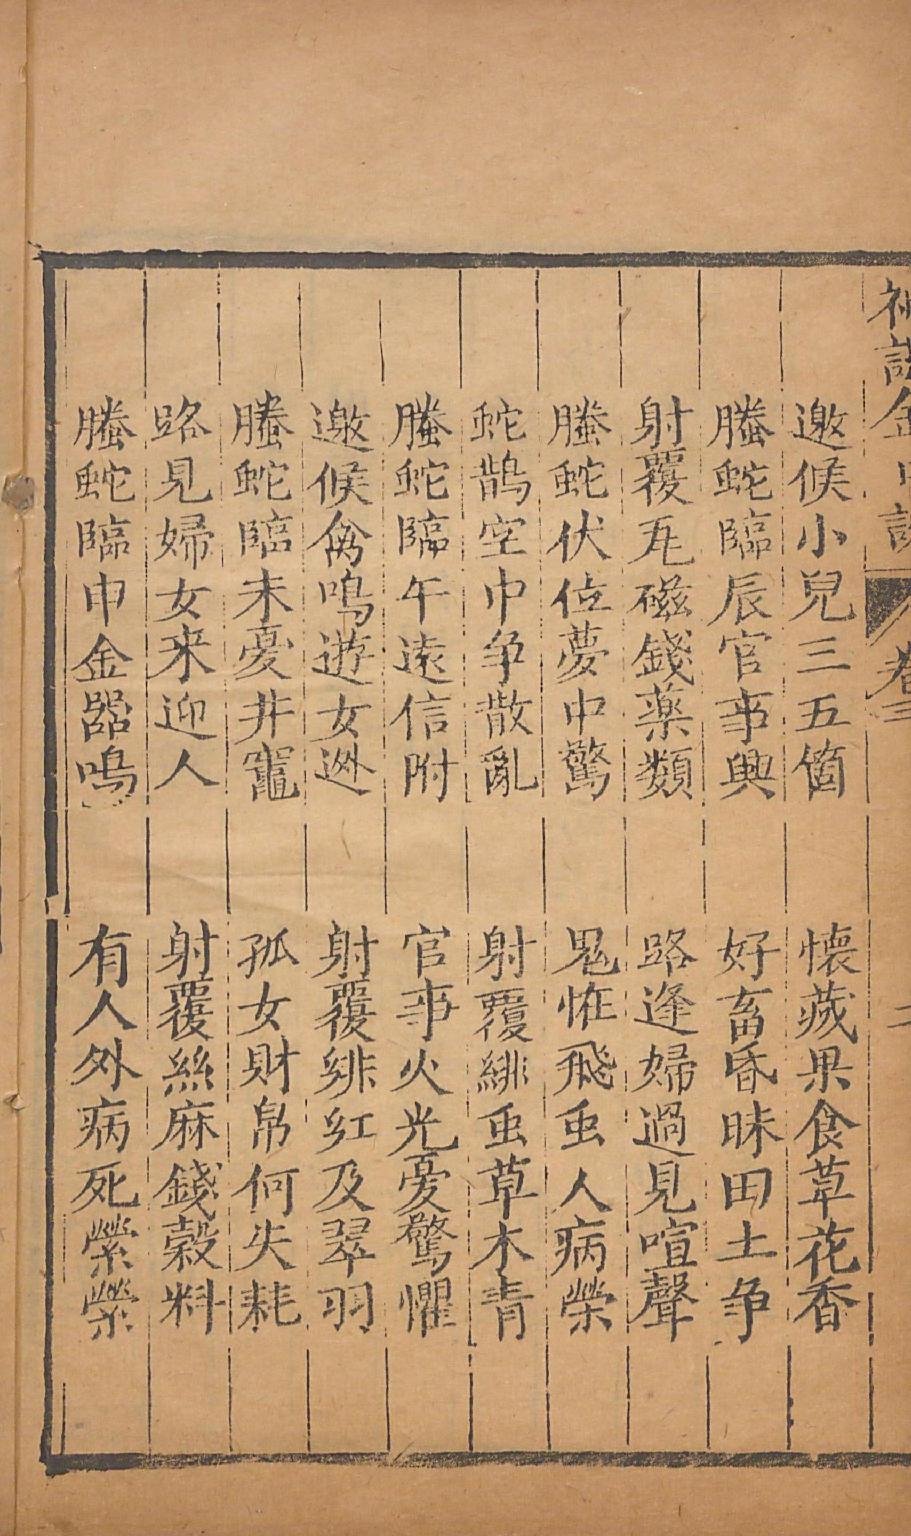 金口訣 卷三
邀候小兒三五箇 懷藏果食草花香
螣蛇臨辰官事興 好畜昏昧田土爭
射覆瓦磁錢藥類 路逢婦過見喧聲
螣蛇伏位夢中驚 鬼怪飛虫人病縈
蛇鵲空中爭散亂 射覆緋虫草木青
螣蛇臨午遠信附 官事火光憂驚懼
邀候禽鳴遊女廵 射覆緋紅及翠羽
螣蛇臨未憂井竈 孤女財帛何失耗
路見婦女来迎人 射覆絲麻錢糓料
螣蛇臨申金噐鳴 有人外病死縈縈